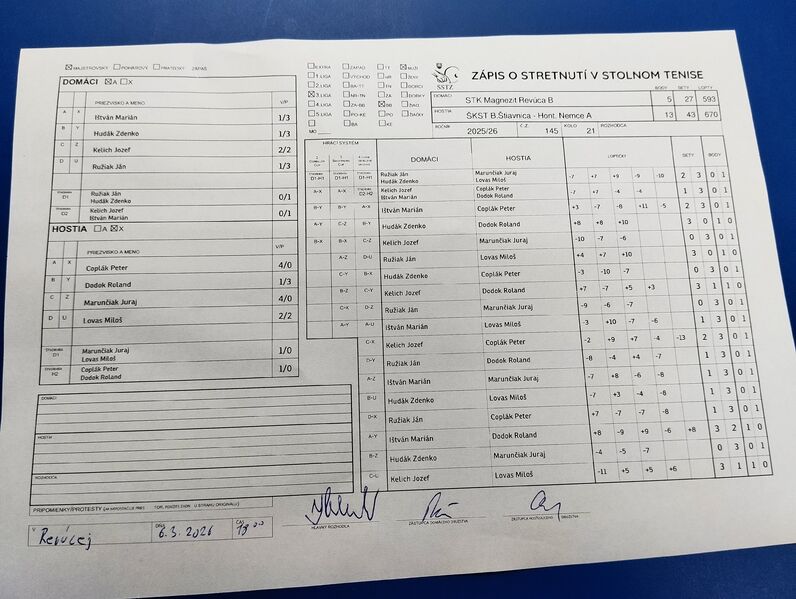 MAJSTROVSKÝ POHÁROVÝ PRIATEĽSKÝ ZÁPAS
DOMÁCI A X
PRIEZVISKO A MENO V/P
A X Ištván Marián 1/3
B Y Hudák Zdenko 1/3
C Z Kelich Jozef 2/2
D U Ružiak Ján 1/3
D1 Ružiak Ján
Hudák Zdenko 0/1
D2 Kelich Jozef
Ištván Marián 0/1
HOSTIA A X
PRIEZVISKO A MENO V/P
A X Coplák Peter 4/0
B Y Dodok Roland 1/3
C Z Marunčiak Juraj 4/0
D U Lovas Miloš 2/2
D1 Marunčiak Juraj
Lovas Miloš 1/0
H2 Coplák Peter
Dodok Roland 1/0
DOMÁCI
HOSTIA
ROZHODCA
PRIPOMIENKY/PROTESTY
V Revúcej DŇA 6.3.2026 18 00
EXTRA ZÁPAD TT MUŽI
1.LIGA VÝCHOD NR ŽENY
2.LIGA BA-TT TN DORCI
3.LIGA NR-TN ZA DORKY
4.LIGA ZA-BB BB ŽIACI
5.LIGA PO-KE PO ŽIAČKY
BA KE
MO
SSTZ
ZÁPIS O STRETNUTÍ V STOLNOM TENISE
DOMÁCI STK Magnezit Revúca B BODY 5 SETY 27 LOPTY 593
HOSTIA ŠKST B.Štiavnica - Hont. Nemce A 13 43 670
ROČNÍK 2025/26 Č.Z. 145 KOLO 21 ROZHODCA
HRACÍ SYSTÉM DOMÁCI HOSTIA LOPTIČKY SETY BODY
D1-H1 D1-H1 D1-H1 Ružiak Ján Hudák Zdenko Marunčiak Juraj Lovas Miloš -7 +7 +9 -9 -10 2 3 0 1
A-X A-X D2-H2 Kelich Jozef Ištván Marián Coplák Peter Dodok Roland -7 +7 -4 -4 1 3 0 1
B-Y B-Y A-X Ištván Marián Coplák Peter +3 -7 -8 +11 -5 2 3 0 1
A-Y C-Z B-Y Hudák Zdenko Dodok Roland +8 +8 +10 3 0 1 0
B-X B-X C-Z Kelich Jozef Marunčiak Juraj -10 -7 -6 0 3 0 1
A-Z D-U Ružiak Ján Lovas Miloš +4 +7 +10 3 0 1 0
C-Y B-X Hudák Zdenko Coplák Peter -3 -10 -7 0 3 0 1
B-Z C-Y Kelich Jozef Dodok Roland +7 -7 +5 +3 3 1 1 0
C-X D-Z Ružiak Ján Marunčiak Juraj -9 -6 -7 0 3 0 1
A-Y A-U Ištván Marián Lovas Miloš -3 +10 -7 -6 1 3 0 1
C-X Kelich Jozef Coplák Peter -2 +9 +7 -4 -13 2 3 0 1
D-Y Ružiak Ján Dodok Roland -8 -4 +4 -7 1 3 0 1
A-Z Ištván Marián Marunčiak Juraj -7 +8 -6 -8 1 3 0 1
B-U Hudák Zdenko Lovas Miloš -7 +3 -4 -8 1 3 0 1
D-X Ružiak Ján Coplák Peter +7 -7 -7 -8 1 3 0 1
A-Y Ištván Marián Dodok Roland +8 -9 +9 -6 +8 3 2 1 0
B-Z Hudák Zdenko Marunčiak Juraj -4 -5 -7 0 3 0 1
C-U Kelich Jozef Lovas Miloš -11 +5 +5 +6 3 1 1 0
HLAVNÝ ROZHODCA ZÁSTUPCA DOMÁCEHO DRUŽSTVA ZÁSTUPCA HOSŤUJÚCEHO DRUŽSTVA